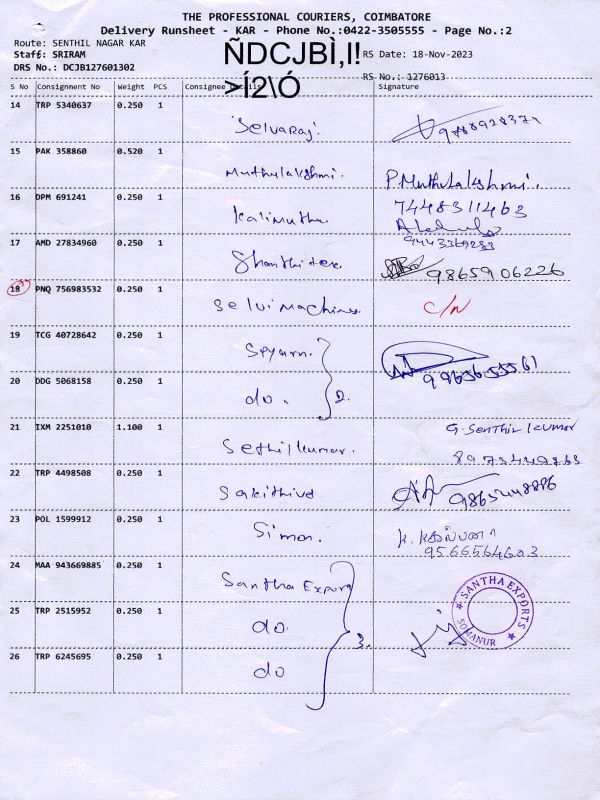 THE PROFESSIONAL COURIERS, COIMBATORE
Delivery Runsheet - KAR - Phone No.:0422-3505555 - Page No.:2
Route: SENTHIL NAGAR KAR
Staff: SRIRAM
DRS No.: DCJB127601302
ÑDCJBÌ,I!
>Í2\Ó
RS Date: 18-Nov-2023
RS No.: 1276013
S No Consignment No Weight PCS Consignee Details Signature
14 TRP 5340637 0.250 1 Selvaraj.
15 PAK 358860 0.520 1 Muthulakshmi. P.Muthulakshmi.
16 DPM 691241 0.250 1 Kalimuthu 7448311463
17 AMD 27834960 0.250 1 Shanthi tex. 9443369283
9865906226
18 PNQ 756983532 0.250 1 Selvi Machines C/N
19 TCG 40728642 0.250 1 Spyarn.
20 DDG 5068158 0.250 1 do. 2.
21 IXM 2251010 1.100 1 Sethilkumar. G. Senthil kumar
22 TRP 4498508 0.250 1 Sakithivel
23 POL 1599912 0.250 1 Simon. K. கல்பனா
9566564603
24 MAA 943669885 0.250 1 Santha Export
25 TRP 2515952 0.250 1 do. 3.
26 TRP 6245695 0.250 1 do
SANTHA EXPORTS
SOMANUR